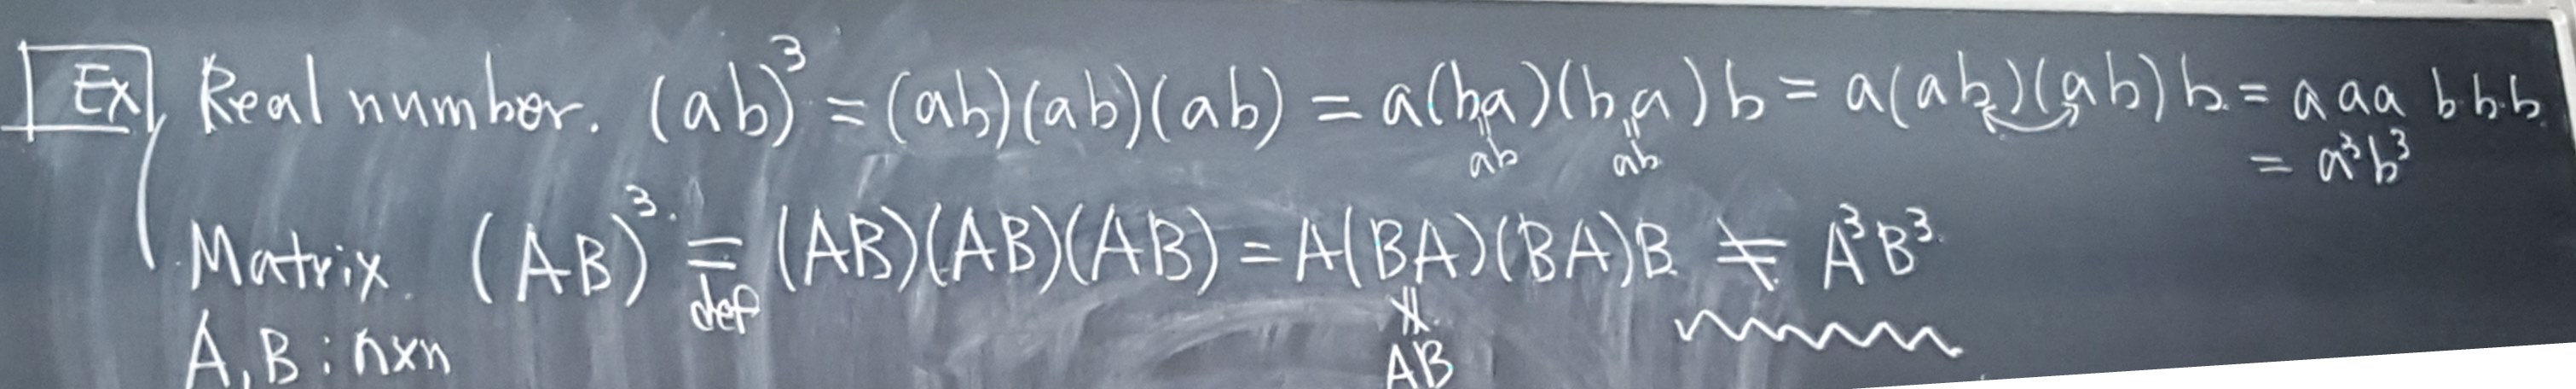 Ex Real number. (ab)³ = (ab)(ab)(ab) = a(ba)(ba)b = a(ab)(ab)b = aaa bbb
ab ab = a³b³
Matrix (AB)³ = (AB)(AB)(AB) = A(BA)(BA)B ≠ A³B³
def ∦
A, B : n×n AB